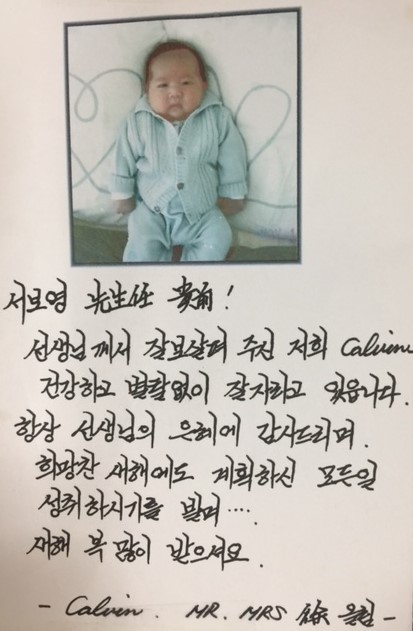 서보영 先生任 貴하!
선생님께서 잘보살펴 주신 저희 Calvin
건강하고 별탈없이 잘자라고 있읍니다.
항상 선생님의 은혜에 감사드리며.
희망찬 새해에도 계획하신 모든일
성취하시기를 빌며····
새해 복 많이 받으세요.
- Calvin. MR. MRS 徐 -